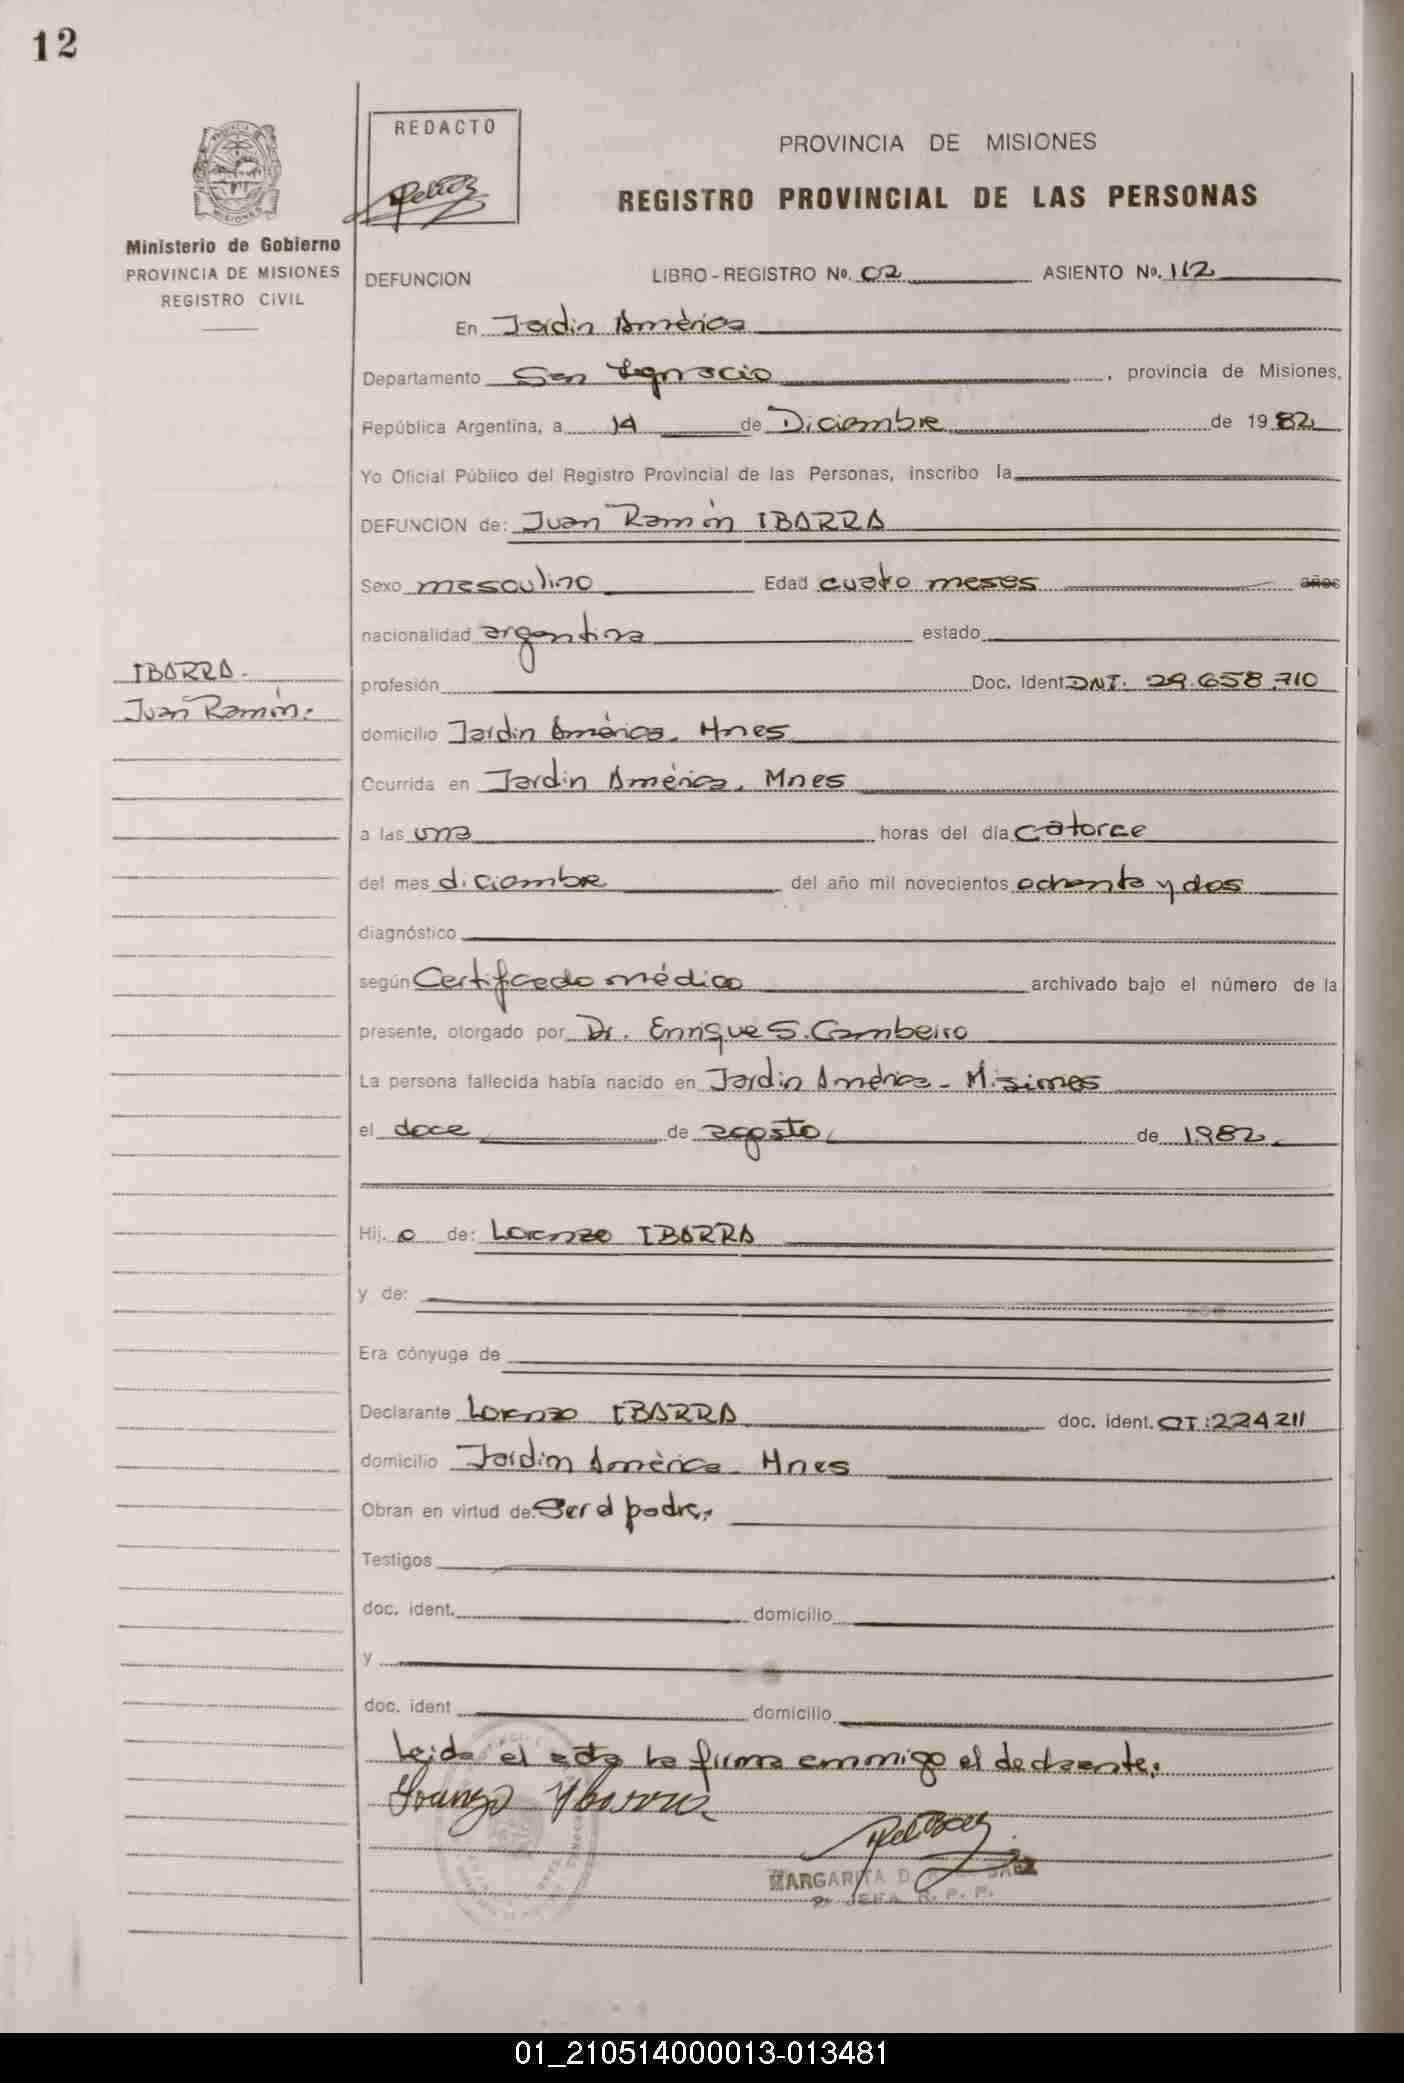 12
REDACTO
PROVINCIA DE MISIONES
REGISTRO PROVINCIAL DE LAS PERSONAS
Ministerio de Gobierno
PROVINCIA DE MISIONES
REGISTRO CIVIL
DEFUNCION LIBRO-REGISTRO Nº. 02 ASIENTO Nº. 112
En Jardin América
Departamento San Ignacio, provincia de Misiones,
República Argentina, a 14 de Diciembre de 1982
Yo Oficial Público del Registro Provincial de las Personas, inscribo la
DEFUNCION de: Juan Ramón IBARRA
Sexo masculino Edad cuato meses años
nacionalidad argentina estado
IBARRA.
Juan Ramón.
profesión Doc. Ident. DNI. 29.658.710
domicilio Jardin América. Mnes
Ocurrida en Jardin América. Mnes
a las una horas del día catorce
del mes diciembre del año mil novecientos ochenta y dos
diagnóstico
según Certificado médico archivado bajo el número de la
presente, otorgado por Dr. Enrique S. Cambeiro
La persona fallecida había nacido en Jardin América - Misiones
el doce de agosto de 1982.
Hij o de: Lorenzo IBARRA
y de:
Era cónyuge de
Declarante Lorenzo IBARRA doc. ident. CI:224211
domicilio Jardin América - Mnes
Obran en virtud de: Ser el padre.
Testigos
doc. ident. domicilio
y
doc. ident domicilio
Leida el acta la firma conmigo el declarante.
Ybarra
MARGARITA D.
JEFA R. P. P.
01_210514000013-013481